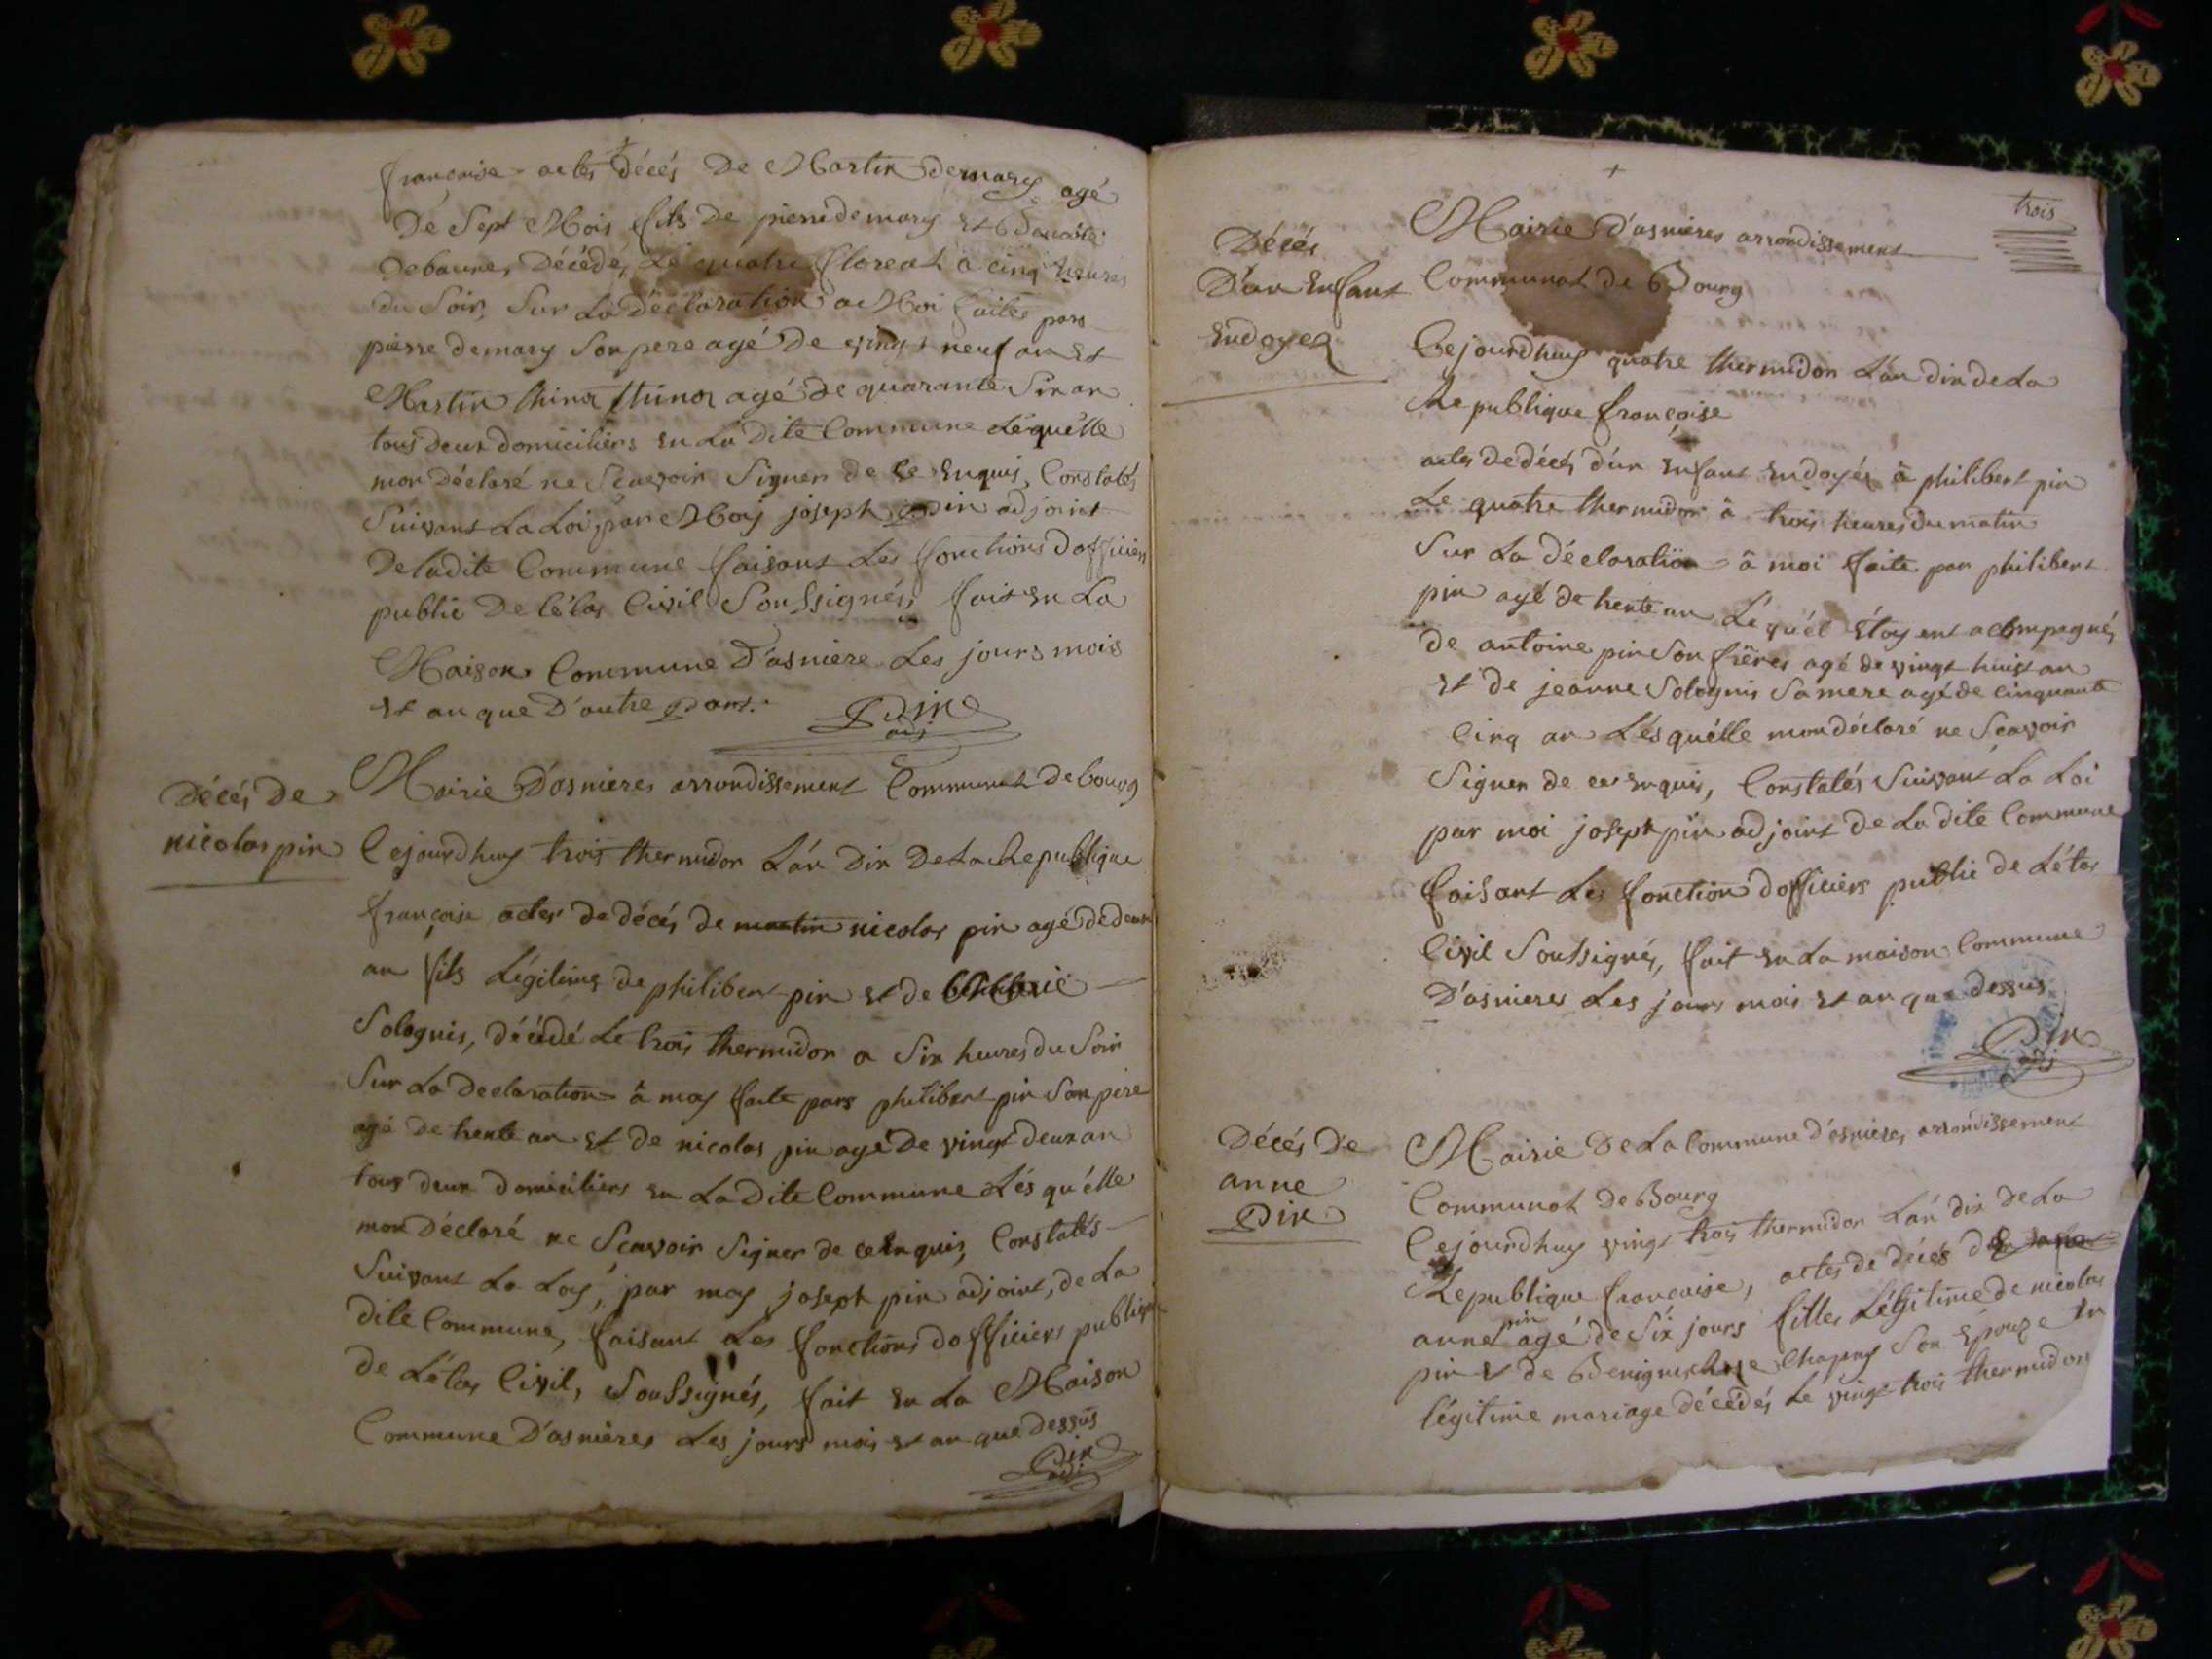 françoise actes décés De Martin demary agé
De Sept Mois fils de pierre demary Et
Debaune, Décédé, Le quatre floreal a cinq heures
du Soir, Sur La Déclaration a Moi faites pars
pierre demary Son pere agé De vingt neuf an Et
Martin thinon thinon agé de quarante Six an
tous deux domiciliers En La Dite Commune Lésquélle
mon Déclaré ne Scavoir Signer de Ce Enquis, Constatés
Suivant La Loi, par Moy joseph pin adjoint
De ladite Commune faisant Les fonctions dofficier
public De l'étas Civil Soussignés, fait En La
Maison Commune D'asniere Les jours mois
Et an que D'autre part.
Pin
adj
Décés De
nicolas pin
Mairie D'asnieres arrondissement Communal De bourg
Cejourdhuy trois thermidor L'an Dix De La Republique
françoise actes de décés de martin nicolas pin agé de deux
an fils Légitime de philibert pin Et de
Solognis, décédé Le trois thermidor a Six heures du Soir
Sur La Declaration â moy faite pars philibert pin Son pere
agé de trente an Et de nicolas pin agé De vingt deux an
tous deux domiciliers En La Dite Commune Lés qu'élle
mon Déclaré ne Scavoir Signer de ce Enquis, Constatés
Suivant La Loy, par moy joseph pin adjoint, de La
dite Commune, faisant Les fonctions dofficiers publique
de L'étas Civil, Soussignés, fait En La Maison
Commune D'asnières Les jours mois Et an que Dessus
Pin
adj
trois
Décés
D'un Enfant
Endoyer
Mairie D'asnieres arrondissement
Communal de Bourg
Cejourdhuy quatre thermidor L'an dix de La
Republique françoise
actes de décés d'un Enfant Endoyés â philibert pin
Le quatre thermidor â trois heures du matin
Sur La déclaration â moi faite par philibert
pin agé de trente an Léquél Étoyent acompagnés
de antoine pin Son frères agé de vingt huist an
Et de jeanne Solognis Sa mere agé de Cinquante
Cinq an Lésquélle mon déclaré ne Scavoir
Signer de ce Enquis, Constatés Suivant La Loi
par moi joseph pin adjoint de La dite Commune
faisant Les fonction dofficiers public de L'étas
Civil Soussignés, fait En La maison Commune
D'asnieres Les jours mois Et an que dessus
Pin
adj
Décés De
anne
Pin
Mairie De La Commune d'asnieres arrondissement
Communal De Bourg
Cejourdhuy vingt trois thermidor L'an dix De La
Republique francaise, actes de décés
anne pin agé de Six jours filles Légitime de nicolas
pin Et de Benigne Chapuy Son Épouze En
légitime mariage décédés Le vingt trois thermidor